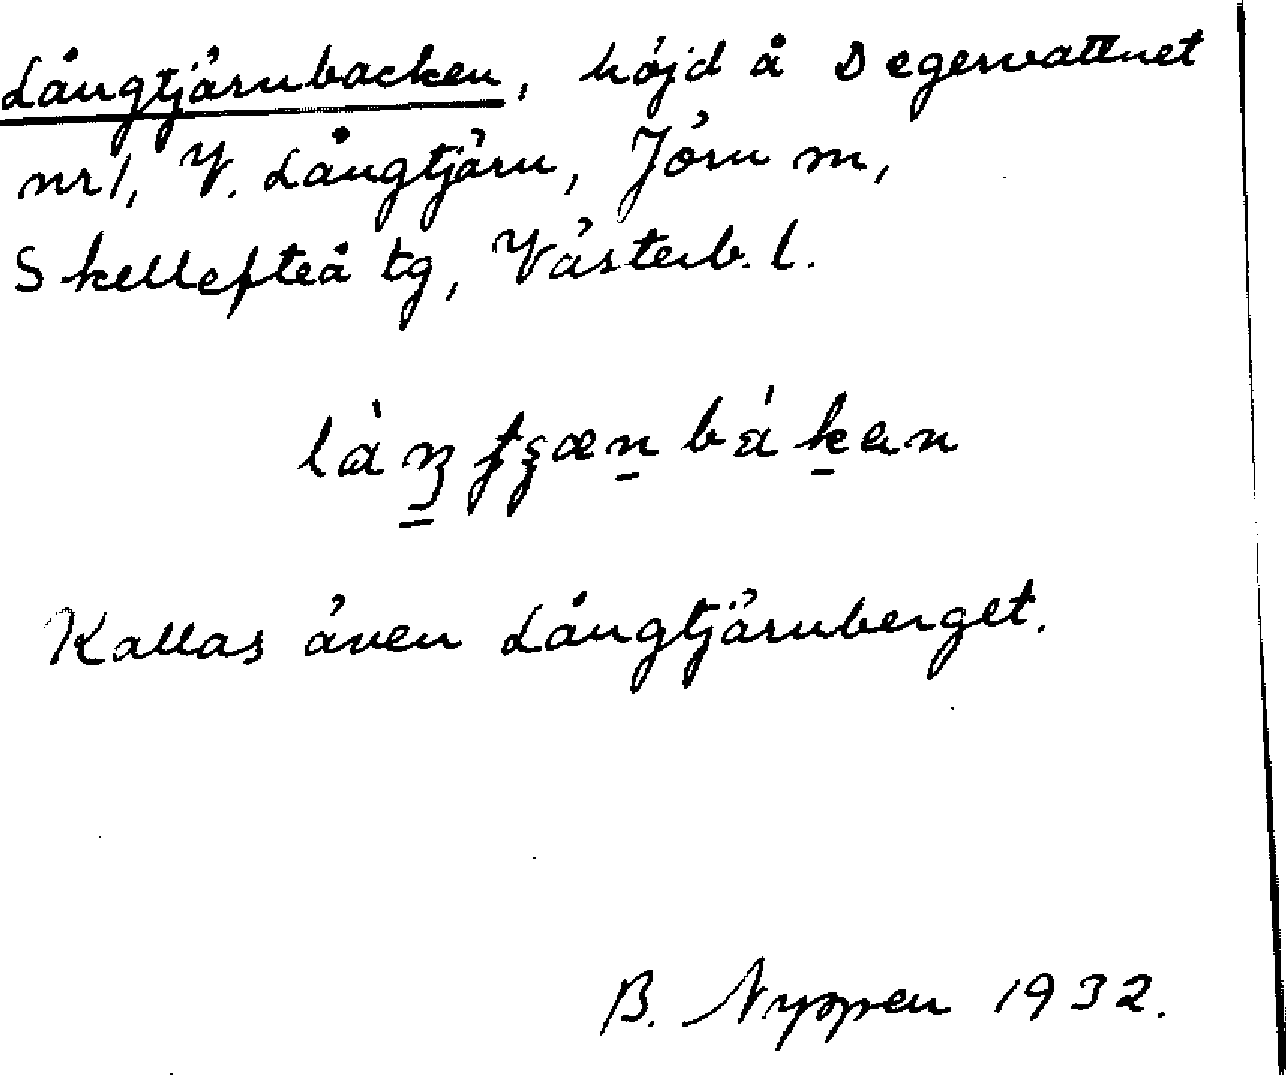 Långtjärnbacken, höjd å Degervattnet
nr 1, V. Långtjärn, Jörn m,
Skellefteå tg, Västerb. l.
Kallas även Långtjärnberget.
B. Nyppen 1932.